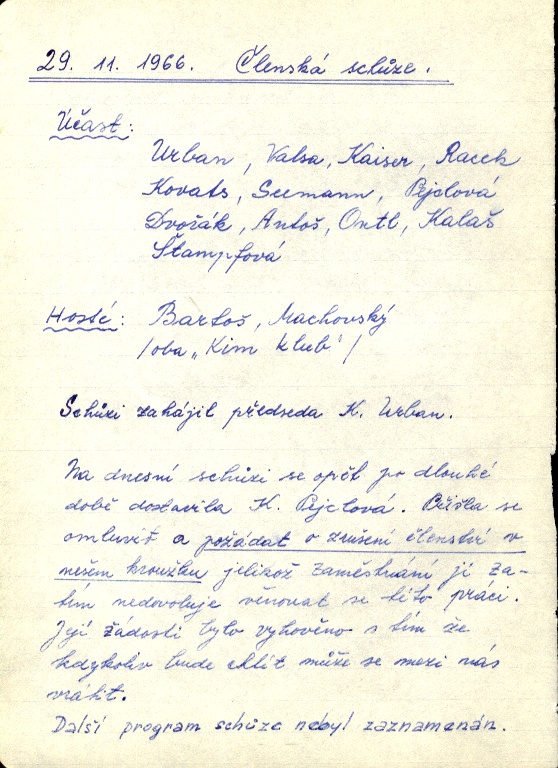 29. 11. 1966. Členská schůze.
Účast:
Urban, Valsa, Kaiser, Racek
Kovats, Seemann, Pejclová
Dvořák, Antoš, Ontl, Kalaš
Štampfová
Hosté: Bartoš, Machovský
/oba „Kim klub“/
Schůzi zahájil předseda K. Urban.
Na dnesní schůzi se opět po dlouhé
době dostavila K. Pejclová. Přišla se
omluvit a požádat o zrušení členství v
našem kroužku jelikož zaměstnání jí za-
tím nedovoluje věnovat se této práci.
Její žádosti bylo vyhověno s tím že
kdykoliv bude chtít může se mezi nás
vrátit.
Další program schůze nebyl zaznamenán.